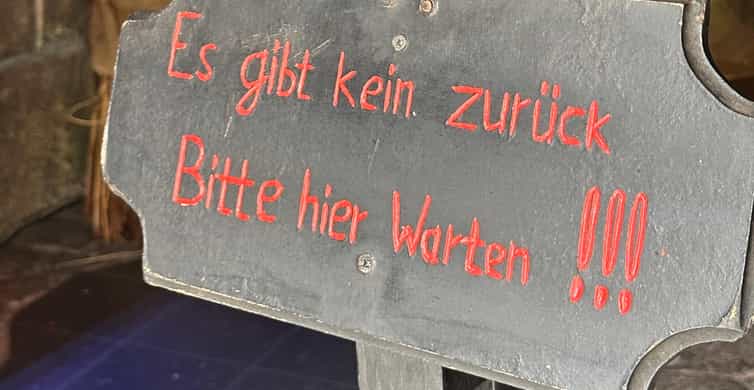 Es gibt kein zurück
Bitte hier Warten !!!